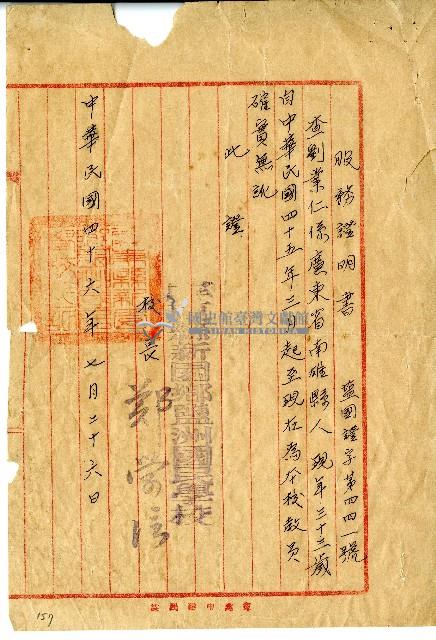 服務證明書 鹽國證字第四四一號
查劉業仁係廣東省南雄縣人現年三十三歲
自中華民國四十五年三月起至現在為本校教員
確實無訛
此證
新園鄉鹽洲國民學校
校長
鄭
中華民國四十六年七月二十六日
國史館臺灣文獻館
TAIWAN HISTORICA
157